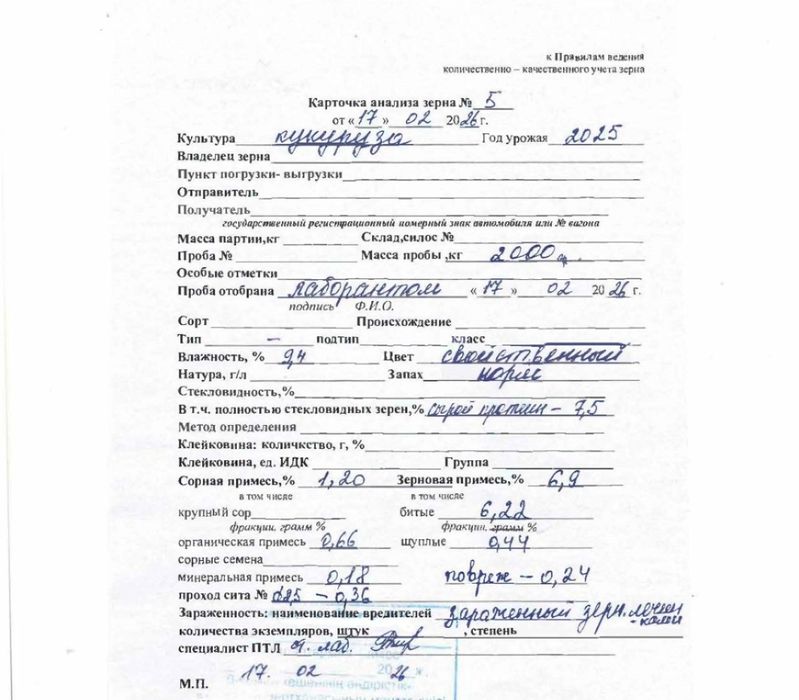 к Правилам ведения
количественно – качественного учета зерна
Карточка анализа зерна № 5
от «17» 02 2026 г.
Культура кукуруза Год урожая 2025
Владелец зерна
Пункт погрузки- выгрузки
Отправитель
Получатель
государственный регистрационный номерный знак автомобиля или № вагона
Масса партии,кг Склад,силос №
Проба № Масса пробы ,кг 2000 гр.
Особые отметки
Проба отобрана лаборантом «17» 02 2026 г.
подпись Ф.И.О.
Сорт Происхождение
Тип – подтип класс
Влажность, % 9,4 Цвет свойственный
Натура, г/л Запах норм
Стекловидность,%
В т.ч. полностью стекловидных зерен,% сырой протеин – 7,5
Метод определения
Клейковина: количкство, г, %
Клейковина, ед. ИДК Группа
Сорная примесь,% 1,20 Зерновая примесь,% 6,9
в том числе в том числе
крупный сор битые 6,22
фракции, грамм % фракции, грамм %
органическая примесь 0,66 щуплые 0,44
сорные семена
минеральная примесь 0,18 повреж – 0,24
проход сита № 2,5 – 0,36
Зараженность: наименование вредителей зараженный зерн.
количества экземпляров, штук , степень
специалист ПТЛ лаб.
М.П. 17. 02 2026